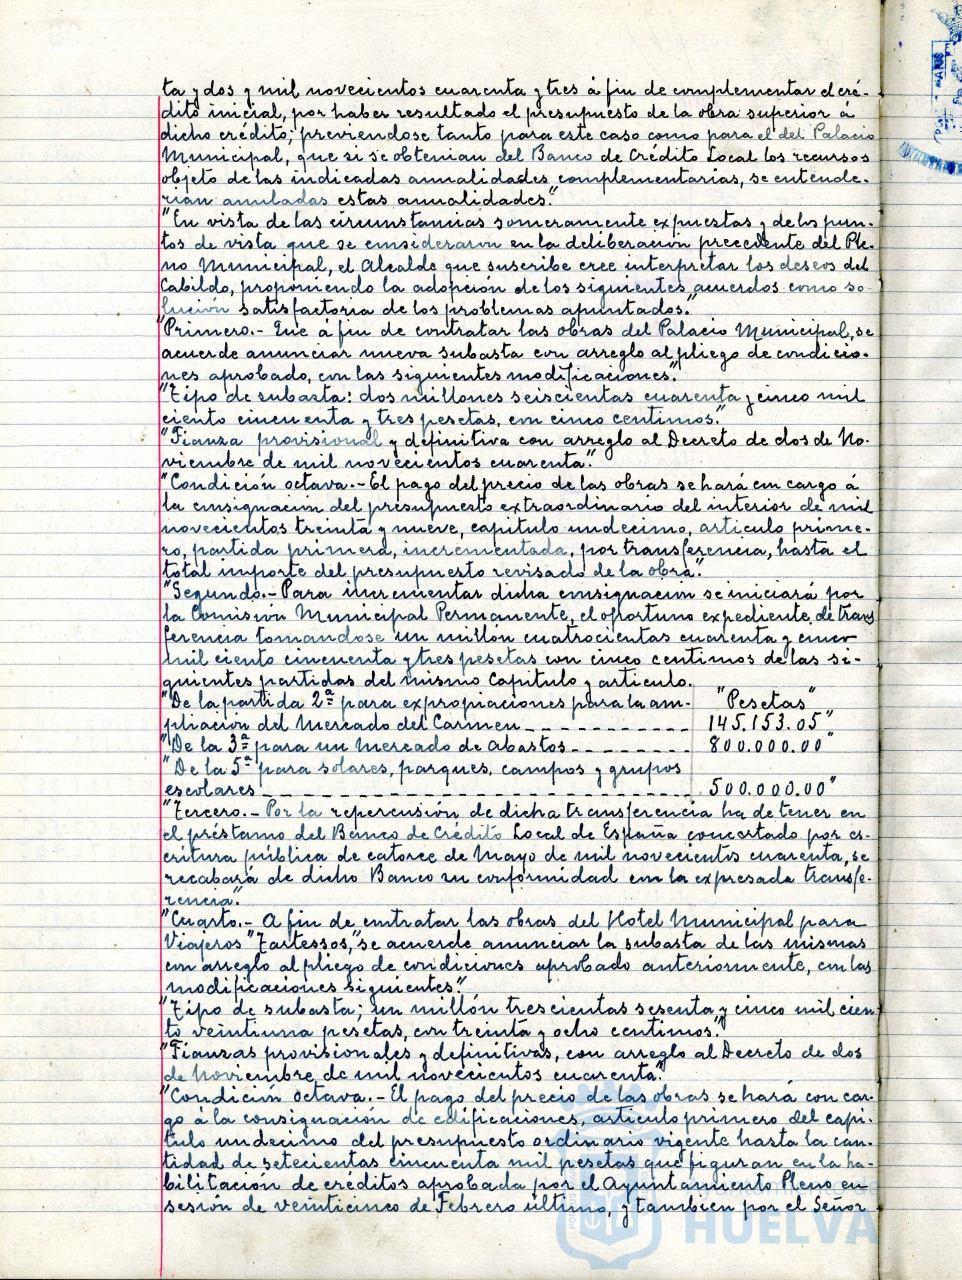 ta y dos y mil novecientos cuarenta y tres á fin de complementar el cré-
dito inicial, por haber resultado el presupuesto de la obra superior á
dicho crédito; previendose tanto para este caso como para el del Palacio
Municipal, que si se obtenian del Banco de Crédito Local los recursos
objeto de las indicadas anualidades complementarias, se entende-
rian anuladas estas anualidades."
"En vista de las circunstancias someramente expuestas y de los pun-
tos de vista que se consideraron en la deliberación precedente del Ple-
no Municipal, el Alcalde que suscribe cree interpretar los deseos del
Cabildo, proponiendo la adopción de los siguientes acuerdos como so-
lución satisfactoria de los problemas apuntados."
"Primero.- Que á fin de contratar las obras del Palacio Municipal, se
acuerde anunciar nueva subasta con arreglo al pliego de condicio-
nes aprobado, con las siguientes modificaciones."
"Tipo de subasta: dos millones seiscientas cuarenta y cinco mil
ciento cincuenta y tres pesetas, con cinco centimos."
"Fianza provisional y definitiva con arreglo al Decreto de dos de No-
viembre de mil novecientos cuarenta."
"Condición octava.- El pago del precio de las obras se hará con cargo á
la consignacion del presupuesto extraordinario del interior de mil
novecientos treinta y nueve, capitulo undecimo, articulo prime-
ro, partida primera, incrementada, por transferencia, hasta el
total importe del presupuesto revisado de la obra."
"Segundo.- Para incrementar dicha consignacion se iniciará por
la Comisión Municipal Permanente, el oportuno expediente de trans
ferencia tomandose un millón cuatrocientas cuarenta y cinco
mil ciento cincuenta y tres pesetas con cinco centimos de las si-
guientes partidas del mismo Capitulo y articulo.
"De la partida 2ª para expropiaciones para la am- "Pesetas"
pliación del Mercado del Carmen ---------- 145.153.05"
"De la 3ª para un mercado de abastos------- 800.000.00"
"De la 5ª para solares, parques, campos y grupos
escolares------------------------ 500.000.00"
"Tercero.- Por la repercusión de dicha transferencia ha de tener en
el préstamo del Banco de Crédito Local de España concertado por es-
critura pública de catorce de Mayo de mil novecientos cuarenta, se
recabará de dicho Banco su conformidad con la expresada transfe-
rencia."
"Cuarto.- A fin de contratar las obras del Hotel Municipal para
Viajeros "Tartessos," se acuerde anunciar la subasta de las mismas
con arreglo al pliego de condiciones aprobado anteriormente, con las
modificaciones siguientes."
"Tipo de subasta; un millón trescientas sesenta y cinco mil cien
to veintiuna pesetas, con treinta y ocho centimos."
"Fianzas provisionales y definitivas, con arreglo al Decreto de dos
de Noviembre de mil novecientos cuarenta."
"Condición octava.- El pago del precio de las obras se hará con car-
go á la consignación de edificaciones, articulo primero del capi-
tulo undecimo del presupuesto ordinario vigente hasta la can-
tidad de setecientas cincuenta mil pesetas que figuran en la ha-
bilitación de créditos aprobada por el Ayuntamiento Pleno en
sesión de veinticinco de Febrero último, y tambien por el Señor
Ayuntamiento de
HUELVA